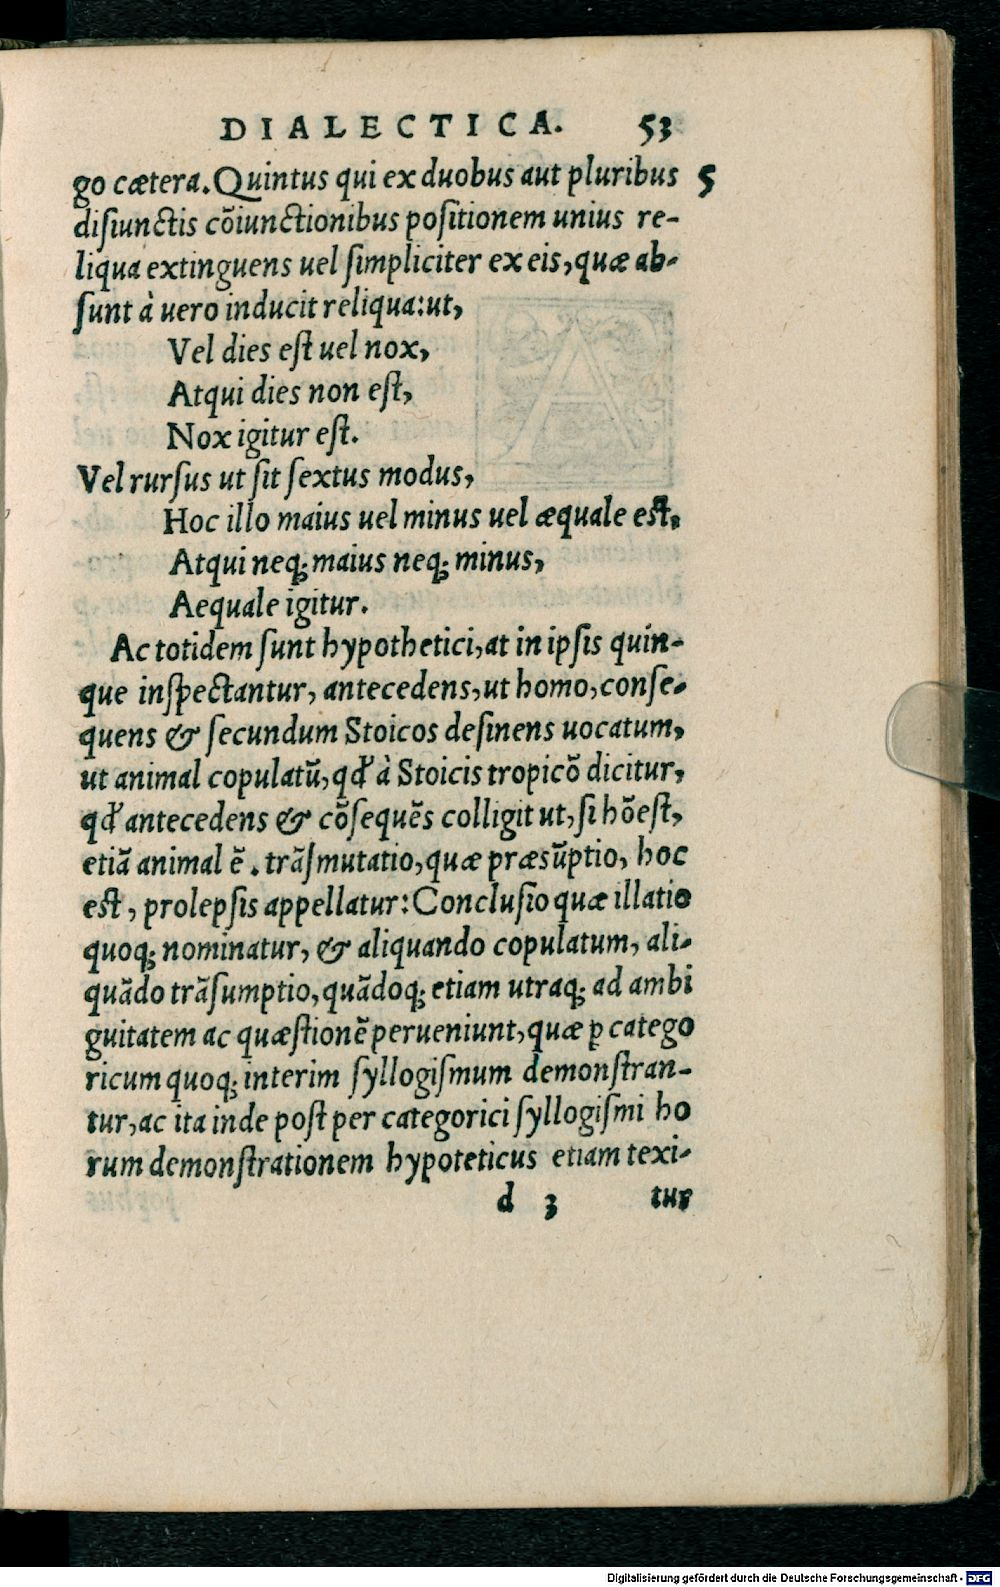 DIALECTICA. 53
go cætera. Quintus qui ex duobus aut pluribus 5
diſiunctis cõiunctionibus poſitionem unius re-
liqua extinguens uel ſimpliciter ex eis, quæ ab-
ſunt à uero inducit reliqua: ut,
Vel dies eſt uel nox,
Atqui dies non eſt,
Nox igitur eſt.
Vel rurſus ut ſit ſextus modus,
Hoc illo maius uel minus uel æquale eſt,
Atqui neq; maius neq; minus,
Aequale igitur.
Ac totidem ſunt hypothetici, at in ipſis quin-
que inſpectantur, antecedens, ut homo, conſe-
quens & ſecundum Stoicos deſinens uocatum,
ut animal copulatũ, qđ à Stoicis tropicõ dicitur,
qđ antecedens & cõſequẽs colligit ut, ſi hõ eſt,
etiã animal ẽ. trãſmutatio, quæ præsũptio, hoc
eſt, prolepſis appellatur: Concluſio quæ illatio
quoq; nominatur, & aliquando copulatum, ali-
quãdo trãſumptio, quãdoq; etiam utraq; ad ambi
guitatem ac quæſtionẽ perueniunt, quæ ꝑ catego
ricum quoq; interim ſyllogiſmum demonſtran-
tur, ac ita inde poſt per categorici ſyllogiſmi ho
rum demonſtrationem hypoteticus etiam texi-
d 3 tur
Digitalisierung gefördert durch die Deutsche Forschungsgemeinschaft - DFG